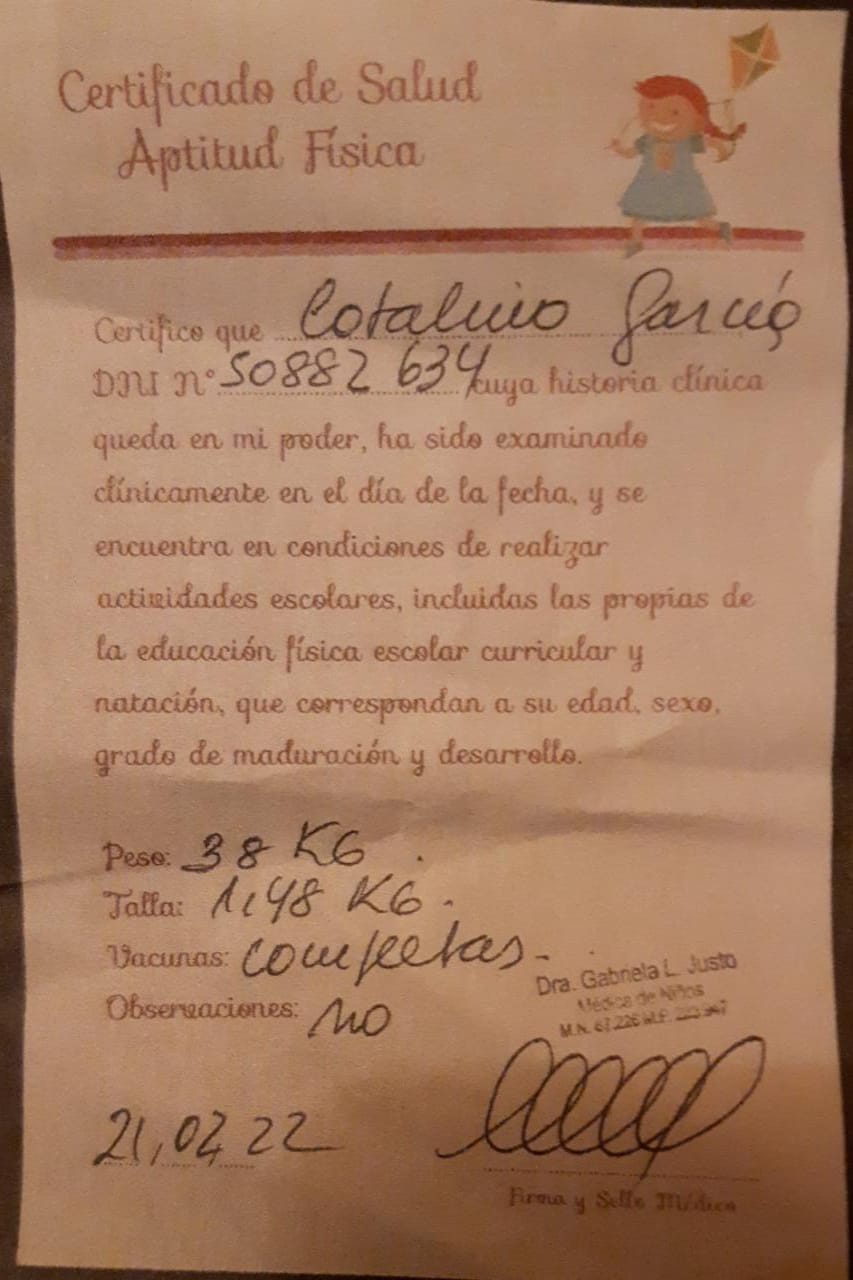 Certificado de Salud
Aptitud Física
Certifico que Catalina García
DNI N° 50882 634 cuya historia clínica
queda en mi poder, ha sido examinado
clínicamente en el día de la fecha, y se
encuentra en condiciones de realizar
actividades escolares, incluidas las propias de
la educación física escolar curricular y
natación, que correspondan a su edad, sexo,
grado de maduración y desarrollo.
Peso: 38 KG.
Talla: 1,48 KG.
Vacunas: completas.-
Observaciones: no
Dra. Gabriela L. Justo
Médica de Niños
M.N. 67.226 M.P.
21,02 22
Firma y Sello Médico